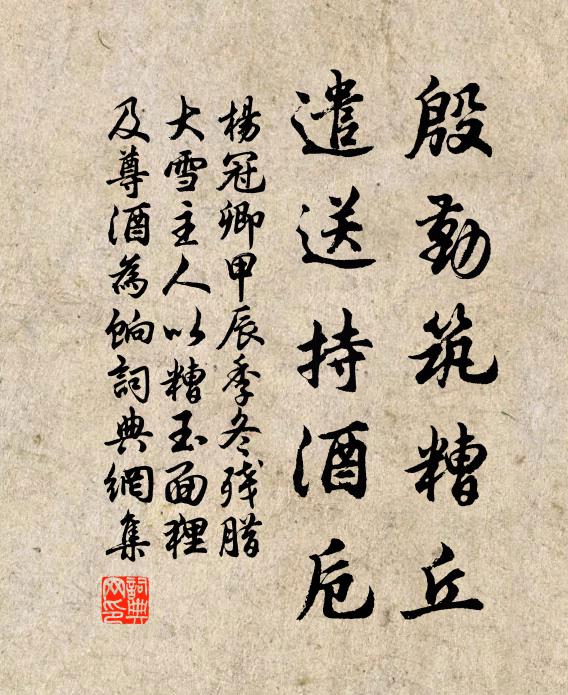 殷勤筑糟丘
遣送持酒卮
楊冠卿甲辰季冬残腊
大雪主人以糟玉面狸
及尊酒為餉詞典網集
詞典